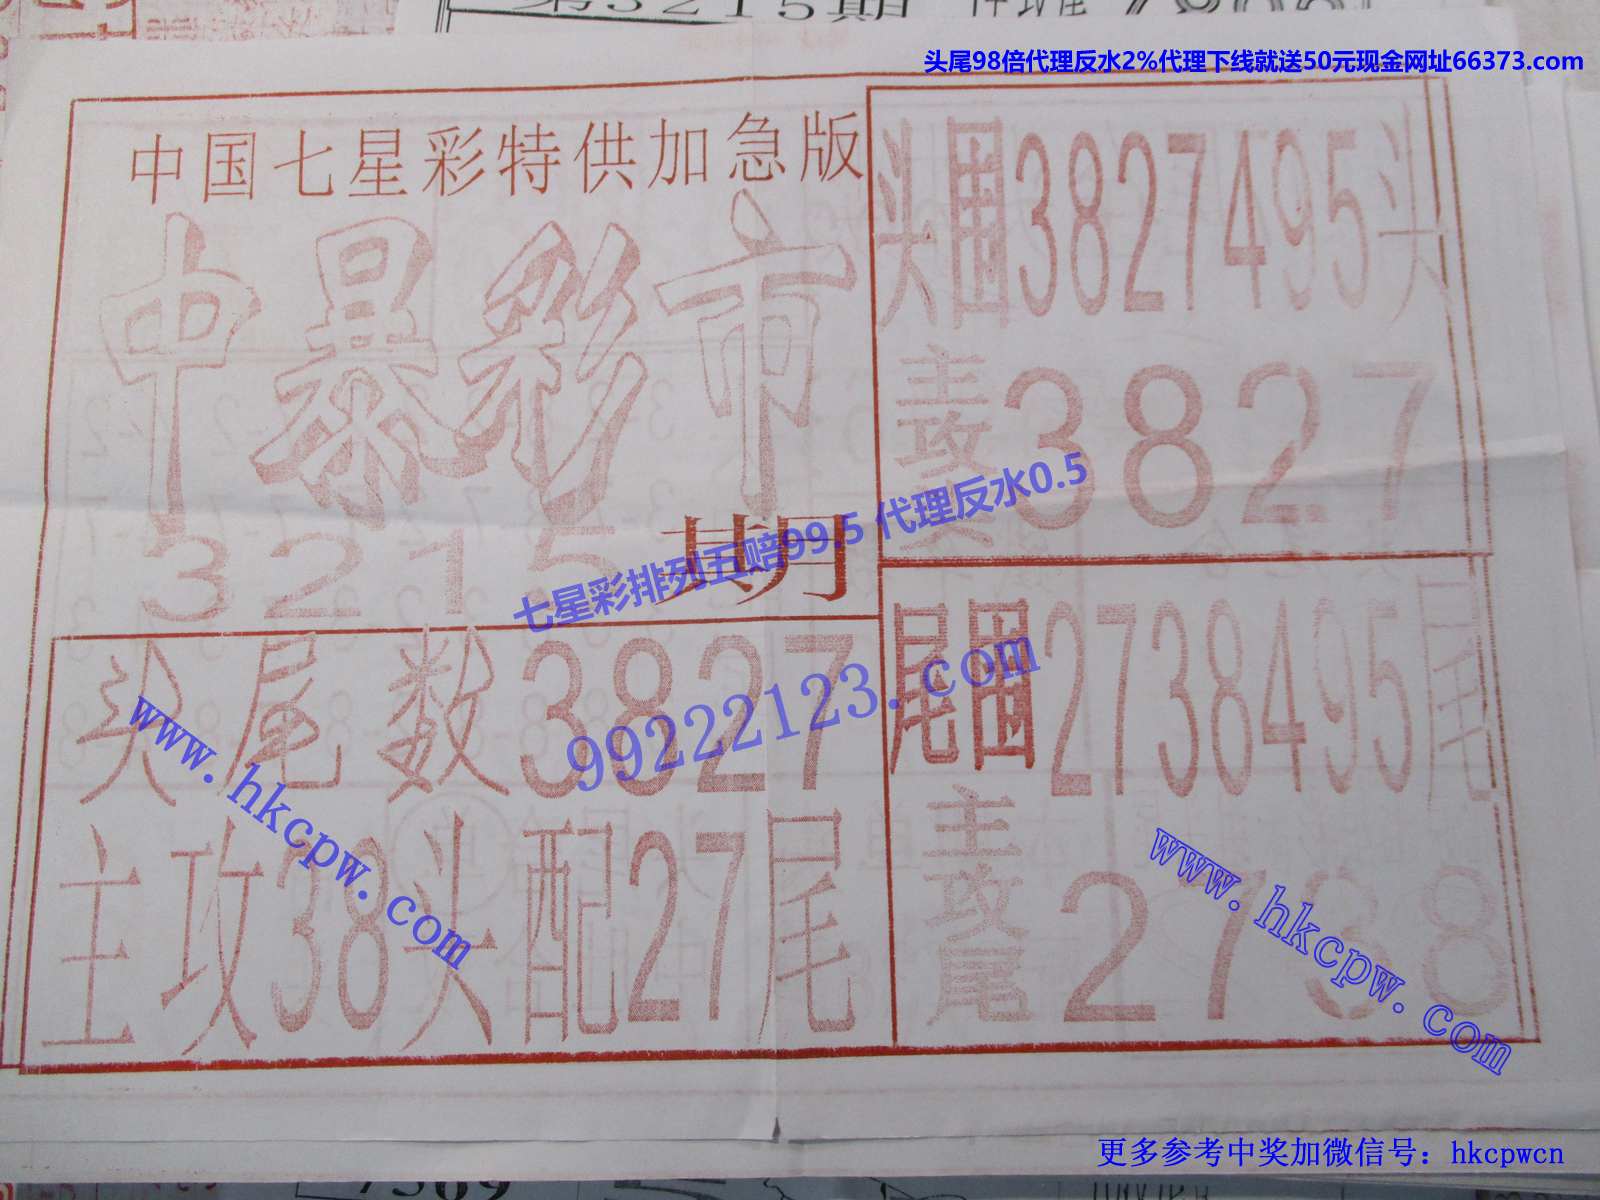 第3215期
头尾98倍代理反水2%代理下线就送50元现金网址66373.com
中国七星彩特供加急版
中暴彩市
3215期
头尾数3827
主攻38头配27尾
头围3827495头
主攻头3827
尾围2738495尾
主攻尾2738
七星彩排列五赔99.5 代理反水0.5
99222123.com
www.hkcpw.com
www.hkcpw.com
更多参考中奖加微信号：hkcpwcn
7569